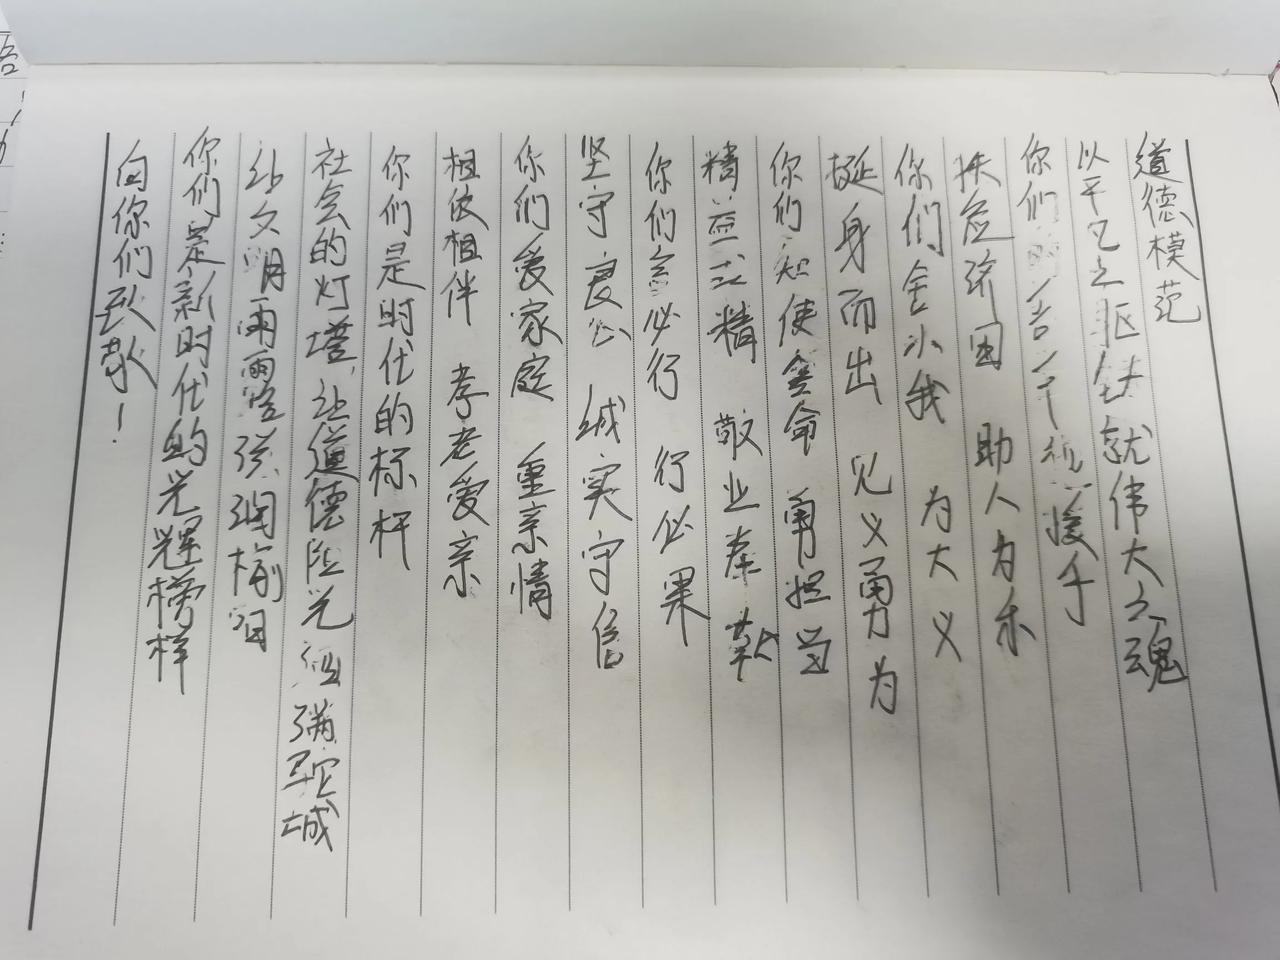 道德模范
以平凡之躯 铸就伟大之魂
你们 援手
扶危济困 助人为乐
你们舍小我 为大义
挺身而出 见义勇为
你们 使命 勇担当
精益求精 敬业奉献
你们言必行 行必果
坚守良心 诚实守信
你们爱家庭 重亲情
相依相伴 孝老爱亲
你们是时代的标杆
社会的灯塔，让道德阳光 洒满 城
让文明雨露滋润榆
你们是新时代的光辉榜样
向你们致敬！